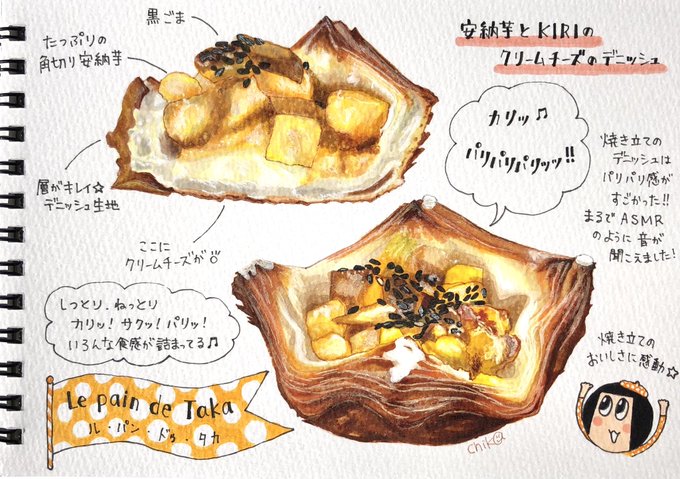 安納芋とKIRIの
クリームチーズのデニッシュ
黒ごま
たっぷりの
角切り安納芋
層がキレイ☆
デニッシュ生地
ここに
クリームチーズが♡
カリッ♫
パリパリパリッッ!!
焼き立ての
デニッシュは
パリパリ感が
すごかった!!
まるでASMR
のように音が
聞こえました!
しっとり、ねっとり
カリッ!サクッ!パリッ!
いろんな食感が詰まってる♫
焼き立ての
おいしさに感動☆
Le pain de Taka
ル・パン・ドゥ・タカ
chika